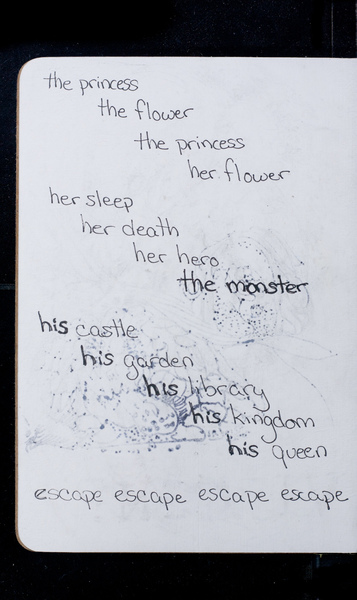 the princess
the flower
the princess
her flower
her sleep
her death
her hero
the monster
his castle
his garden
his library
his kingdom
his queen
escape escape escape escape